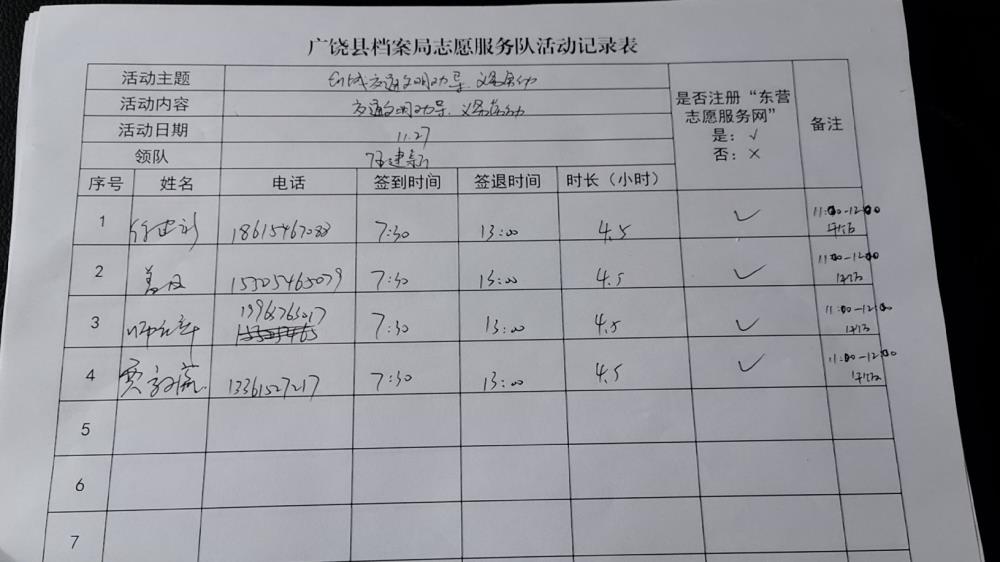 广饶县档案局志愿服务队活动记录表
活动主题 创城交通文明劝导、义务劳动
活动内容 交通文明劝导、义务劳动
活动日期 11.27
领队 建新
是否注册“东营
志愿服务网”
是：√
否：×
备注
序号 姓名 电话 签到时间 签退时间 时长（小时）
1 18615467088 7:30 13:00 4.5 √ 11:00-12:00
2 15505465079 7:30 13:00 4.5 √ 11:00-12:00
3 7:30 13:00 4.5 √ 11:00-12:00
4 贾 13361527217 7:30 13:00 4.5 √ 11:00-12:00
5
6
7